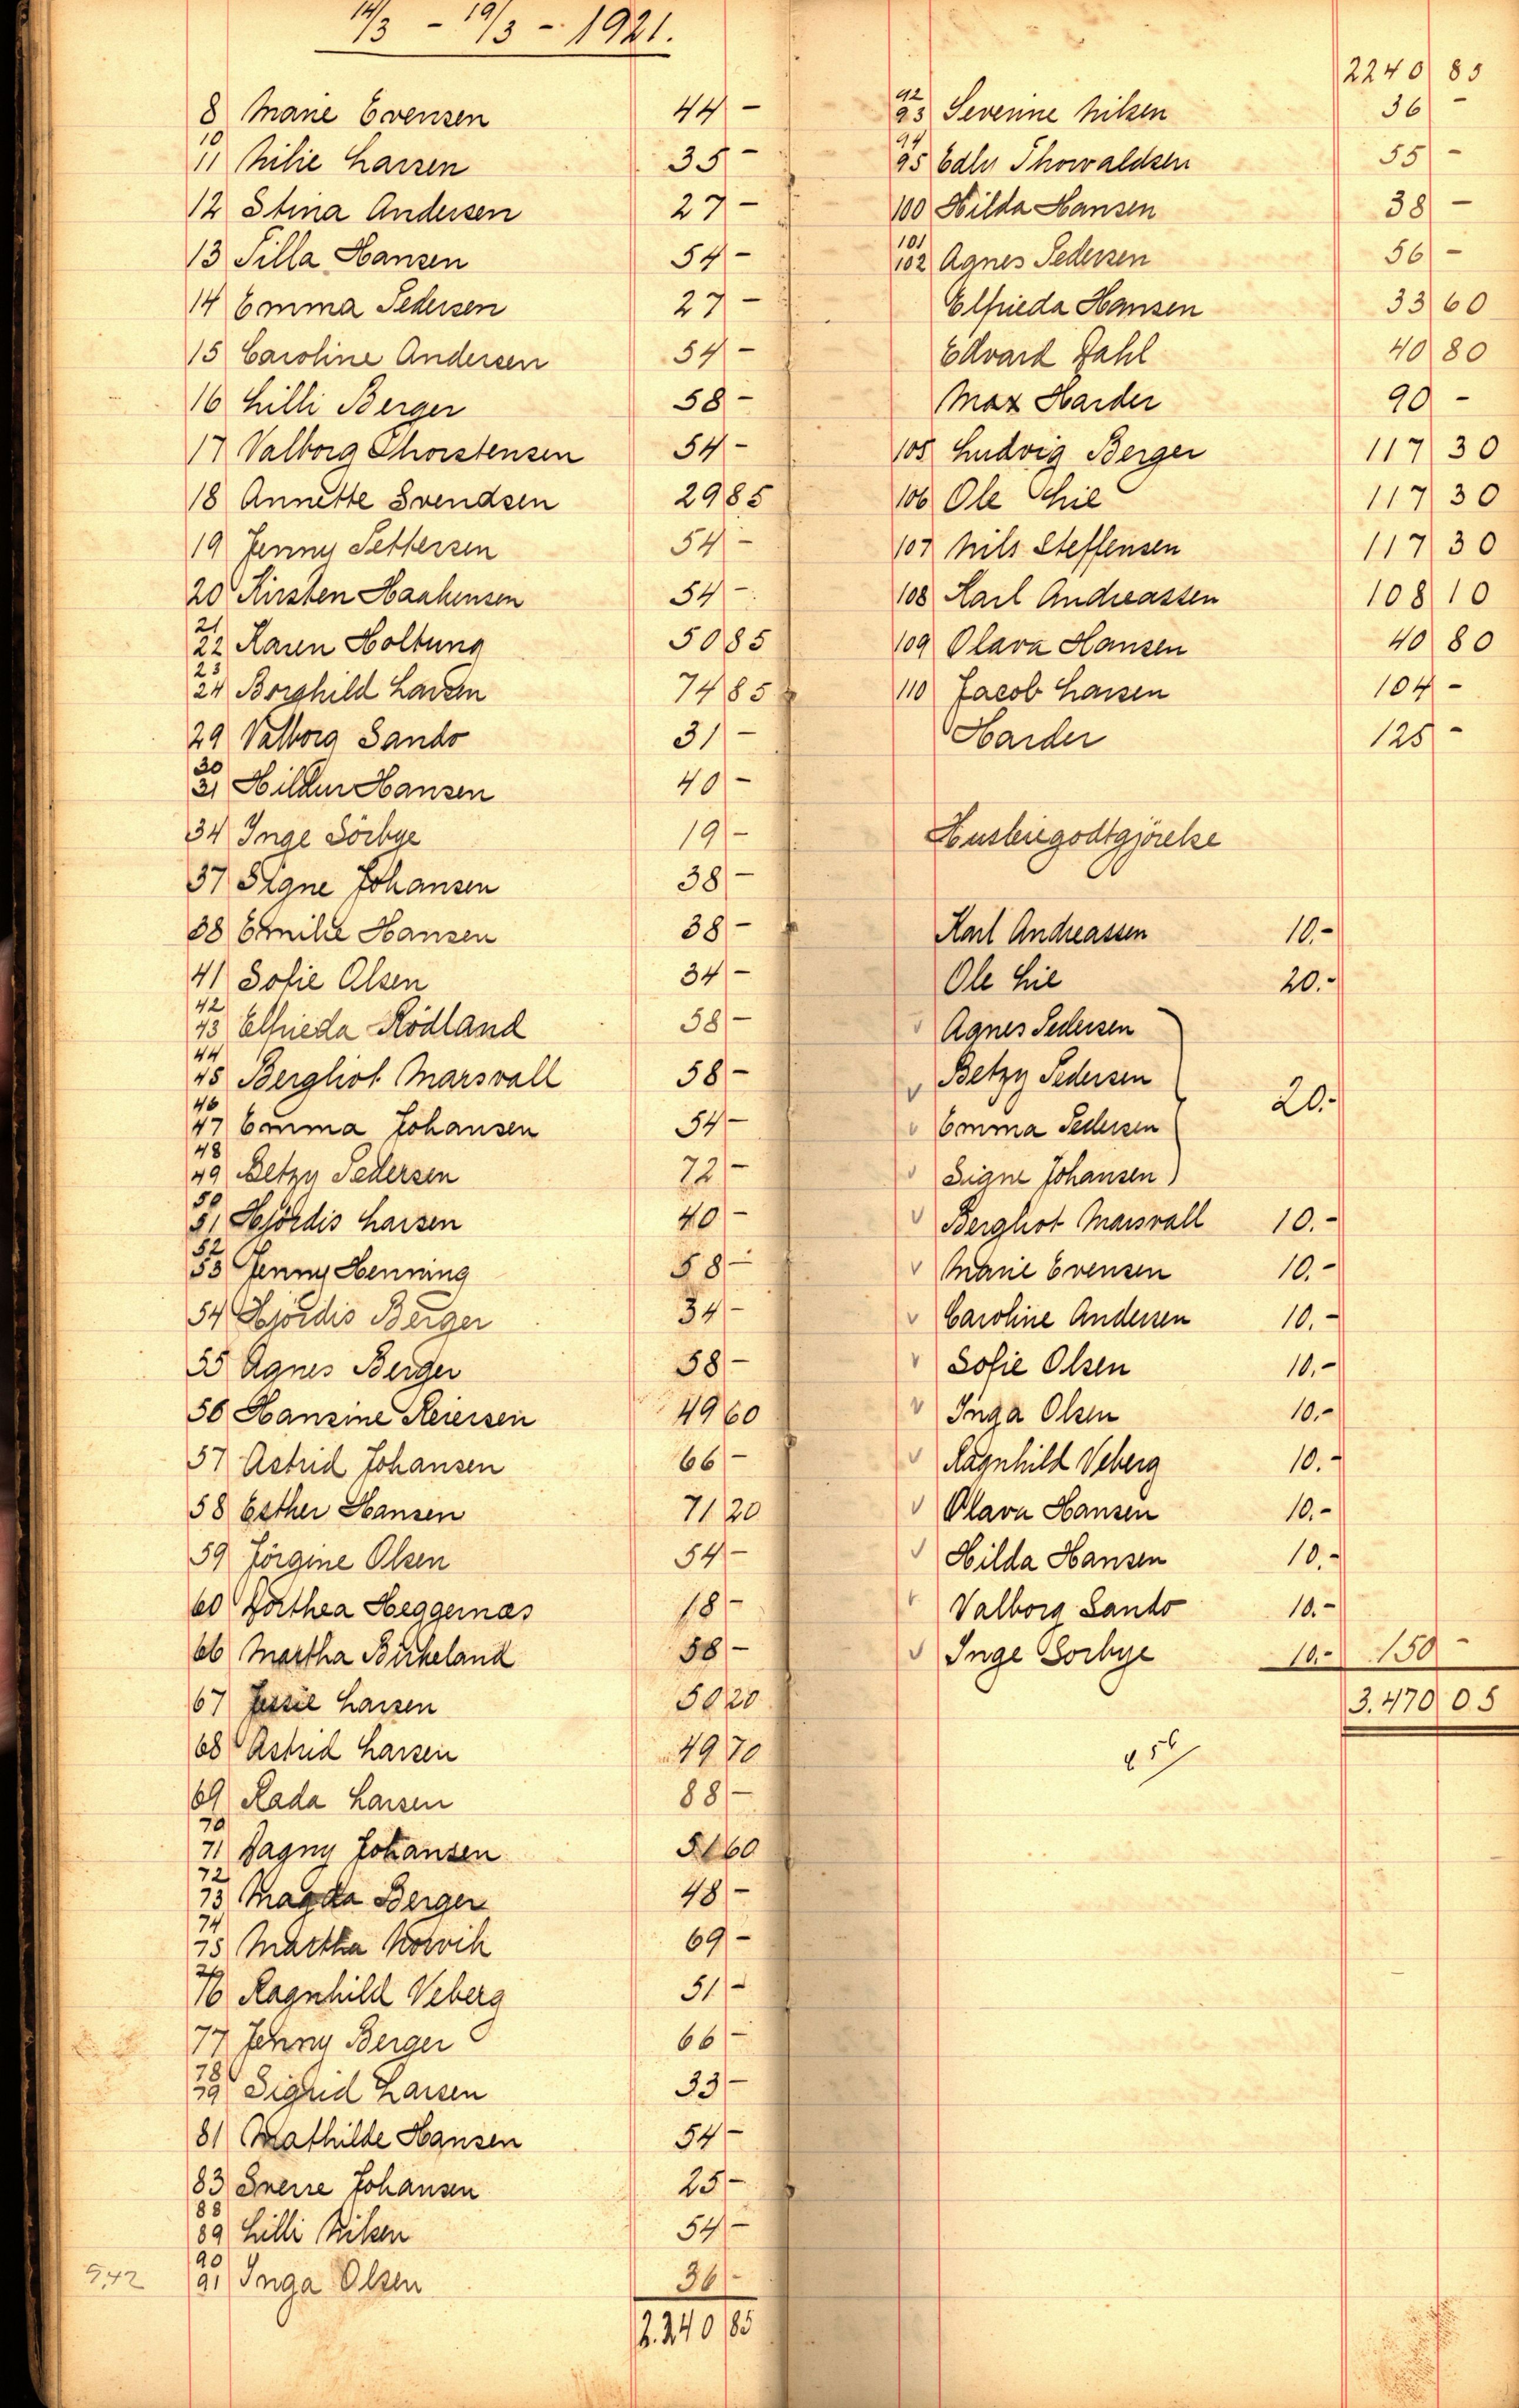 14/3 - 19/3 - 1921.
8 Marie Evensen 44 -
10
11 Milie Larsen 35 -
12 Stina Andersen 27 -
13 Tilla Hansen 54 -
14 Emma Pedersen 27 -
15 Caroline Andersen 54 -
16 Lilli Berger 58 -
17 Valborg Thorstensen 54 -
18 Annette Svendsen 29 85
19 Jenny Pettersen 54 -
20 Kirsten Haakensen 54 -
21
22 Karen Holtung 50 85
23
24 Borghild Larsen 74 85
29 Valborg Sando 31 -
30
31 Hildur Hansen 40 -
34 Inge Sörbye 19 -
37 Signe Johansen 38 -
38 Emilie Hansen 38 -
41 Sofie Olsen 34 -
42
43 Elfrieda Rödland 58 -
44
45 Bergliot Marsvall 58 -
46
47 Emma Johansen 54 -
48
49 Betzy Pedersen 72 -
50
51 Hjördis Larsen 40 -
52
53 Jenny Henning 58 -
54 Hjördis Berger 34 -
55 Agnes Berger 58 -
56 Hansine Reiersen 49 60
57 Astrid Johansen 66 -
58 Esther Hansen 71 20
59 Jörgine Olsen 54 -
60 Dorthea Heggernæs 18 -
66 Martha Birkeland 58 -
67 Jessie Larsen 50 20
68 Astrid Larsen 49 70
69 Rada Larsen 88 -
70
71 Dagny Johansen 51 60
72
73 Magda Berger 48 -
74
75 Martha Norvik 69 -
76 Ragnhild Veberg 51 -
77 Jenny Berger 66 -
78
79 Sigrid Larsen 33 -
81 Mathilde Hansen 54 -
83 Sverre Johansen 25 -
88
89 Lilli Nilsen 54 -
90
91 Inga Olsen 36 -
542
2.240 85
2240 85
92
93 Severine Nilsen 36 -
94
95 Edly Thorvaldsen 55 -
100 Hilda Hansen 38 -
101
102 Agnes Pedersen 56 -
Elfrieda Hansen 33 60
Edvard Dahl 40 80
Max Harder 90 -
105 Ludvig Berger 117 30
106 Ole Lie 117 30
107 Nils Steffensen 117 30
108 Karl Andreassen 108 10
109 Olava Hansen 40 80
110 Jacob Larsen 104 -
Harder 125 -
Husleiegodtgjörelse
Karl Andreassen 10.-
Ole Lie 20.-
v Agnes Pedersen
v Betzy Pedersen
20.-
v Emma Pedersen
v Signe Johansen
v Bergliot Marsvall 10.-
v Marie Evensen 10.-
v Caroline Andersen 10.-
v Sofie Olsen 10.-
v Inga Olsen 10.-
v Ragnhild Veberg 10.-
v Olava Hansen 10.-
v Hilda Hansen 10.-
v Valborg Sando 10.-
v Inge Sorbye 10.- 150 -
3.470 05